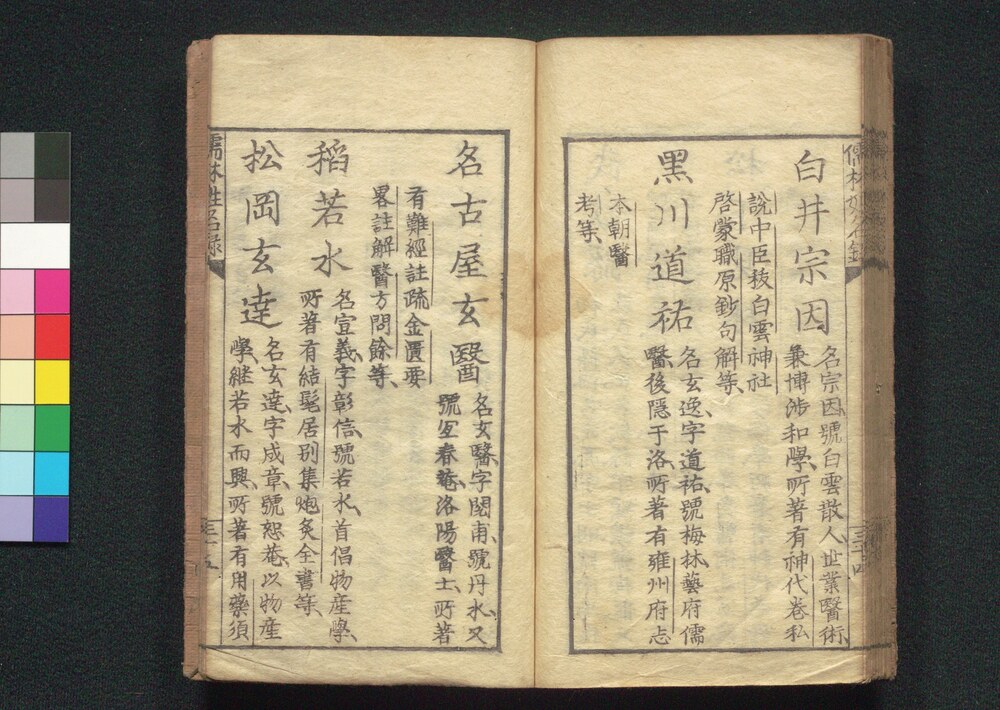 白井宗因
名宗因號白雲散人世業醫術
兼博渉和學所著有神代巻私
説中臣祓白雲神社
啓蒙職原鈔句解等
黑川道祐
名玄逸字道祐號梅林藝府儒
醫後隠于洛所著有雍州府志
本朝醫
考等
名古屋玄醫
名玄醫字閎甫號丹水又
號宜春菴洛陽醫士所著
有難經註疏金匱要
畧註解醫方問餘等
稻若水
名宣義字彰信號若水首倡物産學
所著有結髦居別集炮炙全書等
松岡玄達
名玄達字成章號恕菴以物産
學継若水而興所著有用藥須
儒林姓名録